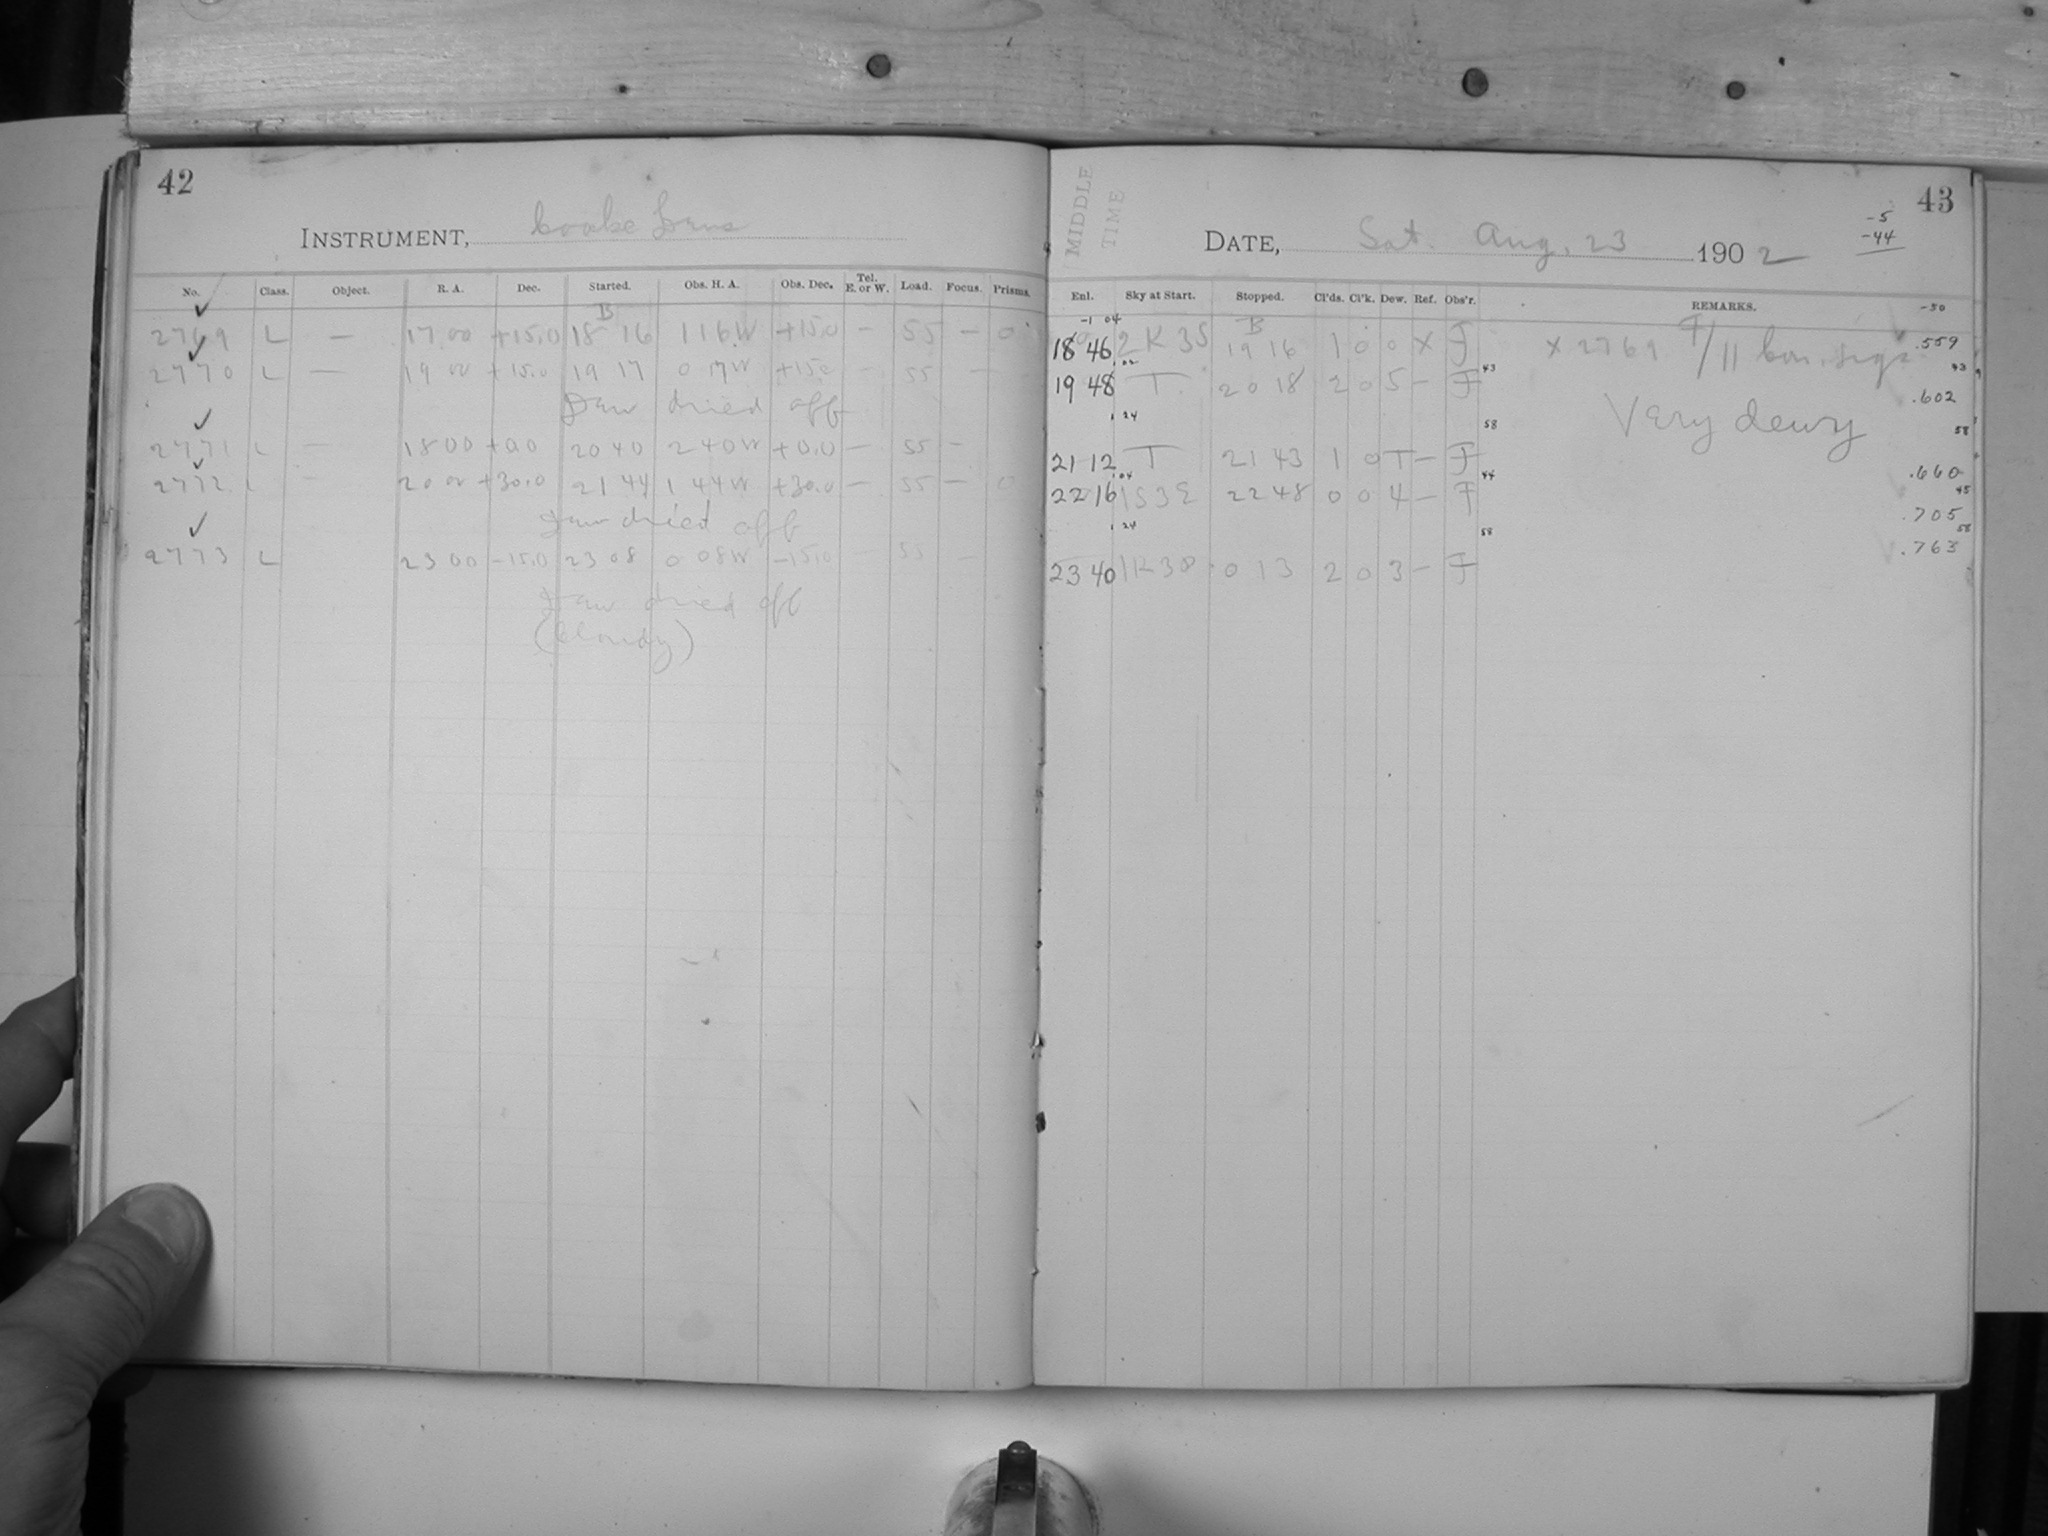 42
INSTRUMENT, Cooke Lens
No. Class. Object. R. A. Dec. Started. Obs. H. A. Obs. Dec. Tel. E. or W. Load. Focus. Prisms.
B
2769 L — 17 00 +15.0 18 16 1 16W +15.0 — 55 — 0
2770 L — 19 00 +15.0 19 17 0 17W +15.0 — 55 —
Dew dried off
2771 L — 18 00 +0.0 20 40 2 40W +0.0 — 55 —
2772 L — 20 00 +30.0 21 44 1 44W +30.0 — 55 — 0
Dew dried off
2773 L 23 00 -15.0 23 08 0 08W -15.0 55 —
Dew dried off
(Cloudy)
43
MIDDLE TIME
-5
-44
DATE, Sat. Aug. 23 1902
Enl. Sky at Start. Stopped. Cl'ds. Cl'k. Dew. Ref. Obs'r. REMARKS. -50
-1 04 B
18 46 2K3S 19 16 1 0 0 X F X 2769 /11 .559
1 02 43 43
19 48 T. 20 18 2 0 5 — F .602
Very dewy
1 24 58 58
21 12 T 21 43 1 0 T — F .660
1 04 44 45
22 16 1S3E 22 48 0 0 4 — F .705
1 24 58 58
.763
23 40 0 13 2 0 3 — F